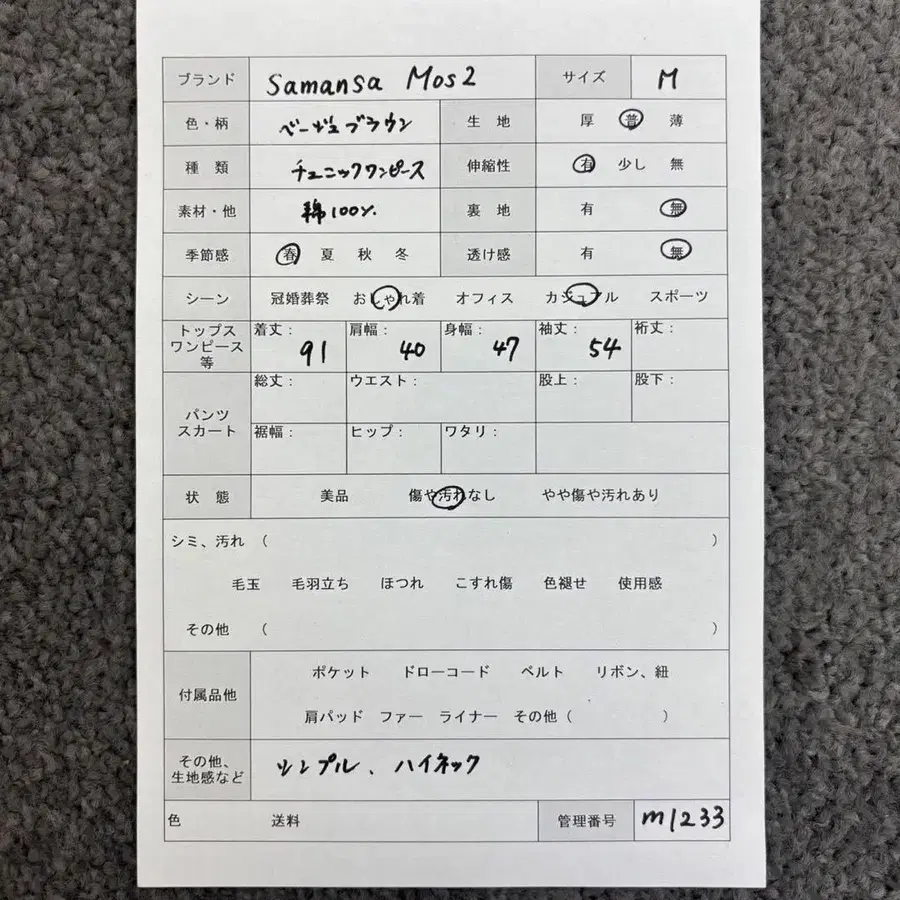 ブランド Samansa Mos2 サイズ M
色・柄 ベージュブラウン 生地 厚 普 薄
種類 チュニックワンピース 伸縮性 有 少し 無
素材・他 綿100% 裏地 有 無
季節感 春 夏 秋 冬 透け感 有 無
シーン 冠婚葬祭 おしゃれ着 オフィス カジュアル スポーツ
トップス
ワンピース
等
着丈: 91 肩幅: 40 身幅: 47 袖丈: 54 裄丈:
パンツ
スカート
総丈: ウエスト: 股上: 股下:
裾幅: ヒップ: ワタリ:
状態 美品 傷や汚れなし やや傷や汚れあり
シミ、汚れ ( )
毛玉 毛羽立ち ほつれ こすれ傷 色褪せ 使用感
その他 ( )
付属品他
ポケット ドローコード ベルト リボン、紐
肩パッド ファー ライナー その他( )
その他、
生地感など
シンプル、ハイネック
色 送料 管理番号 m1233